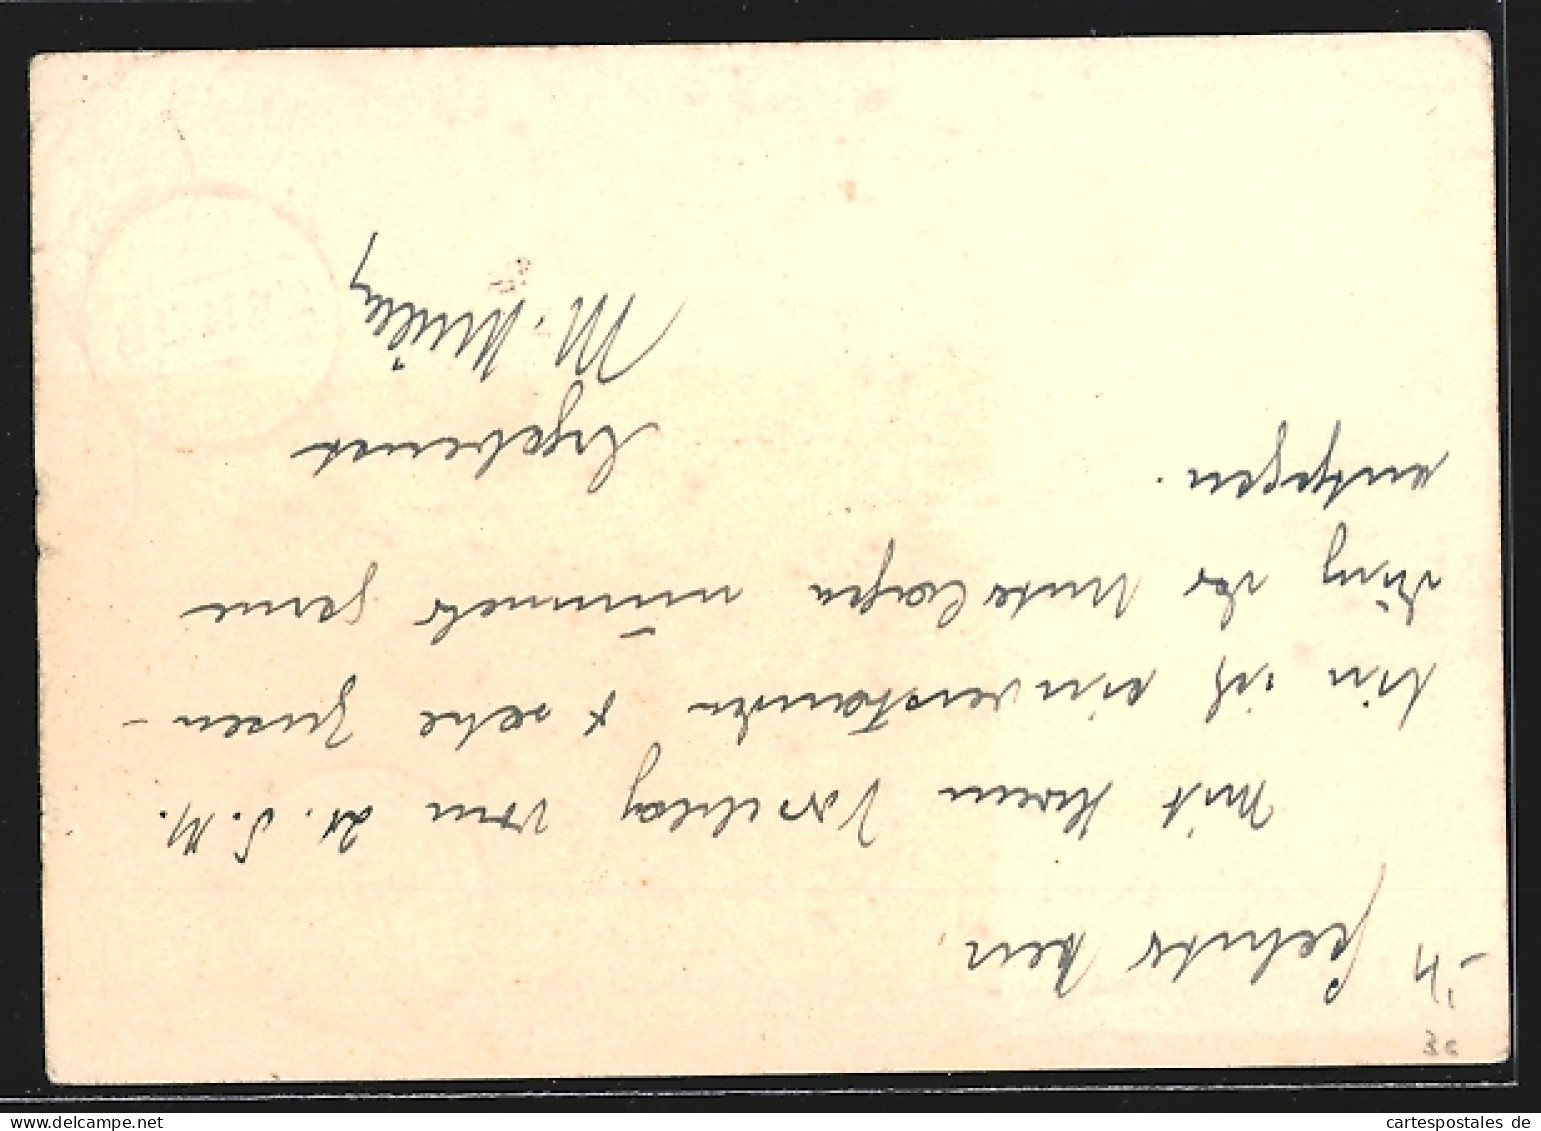 Geehrter Herr,
Mit Ihrem Vorschlag vom 21. d. M.
bin ich einverstanden & sehe Zusen-
dung der Unterlagen nunmehr gerne
entgegen.
Ergebenst
M. Müller
www.delcampe.net
cartespostales de